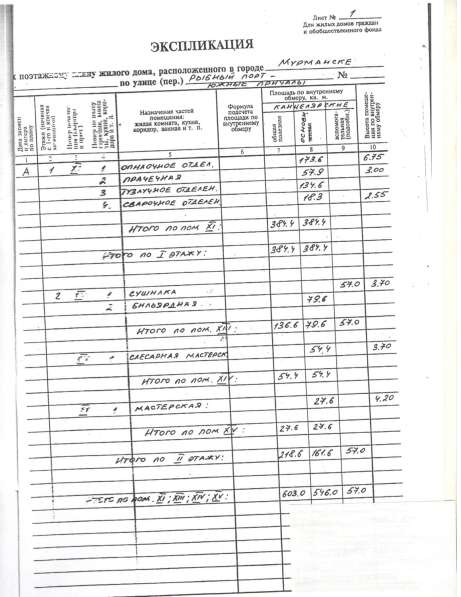 Лист № 1
Для жилых домов граждан
и обобществленного фонда
ЭКСПЛИКАЦИЯ
к поэтажному плану жилого дома, расположенного в городе Мурманске
по улице (пер.) Рыбный порт - №
Южные причалы
Назначение частей помещения: жилая комната, кухня, коридор, ванная и т. п.
Формула подсчета площади по внутреннему обмеру
Площадь по внутреннему обмеру, кв. м.
канцелярские
общая полезная
основн.
1 2 3 4 5 6 7 8 9 10
А 1 XI 1 Опилочное отдел. 173.6 6.75
2 Прачечная 57.9 3.00
3 Тузлучное отделен. 134.6
4. Сварочное отделен 18.3 2.55
Итого по пом XI: 384.4 384.4
Итого по I этажу: 384.4 384.4
2 1 Сушилка 57.0 3.70
2 Бильярдная 79.6
Итого по пом. XIII: 136.6 79.6 57.0
1 Слесарная мастерск. 54.4 3.70
Итого по пом. XIV: 54.4 54.4
XV 1 Мастерская: 27.6 4.20
Итого по пом XV: 27.6 27.6
Итого по II этажу: 218.6 161.6 57.0
по пом. XI; XIII; XIV; XV: 603.0 546.0 57.0